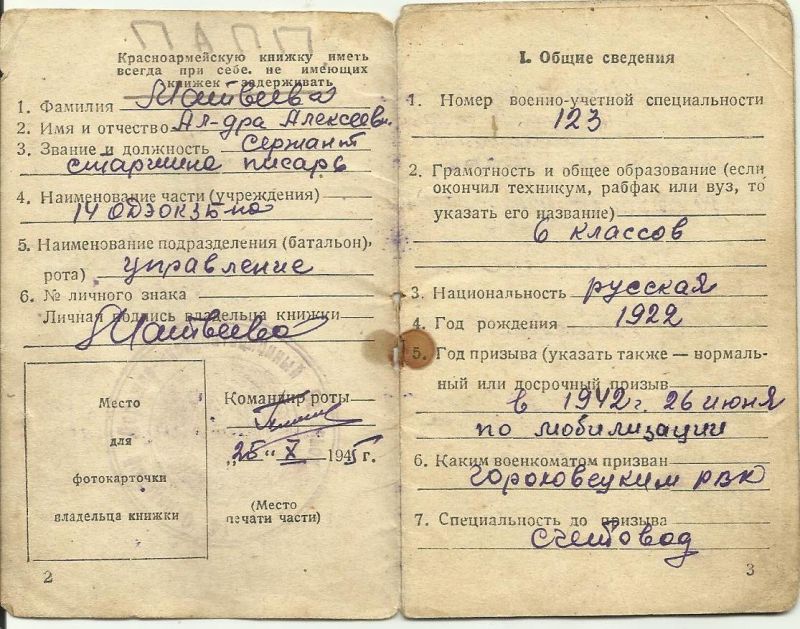 Красноармейскую книжку иметь
всегда при себе. не имеющих
книжек — задерживать
1. Фамилия Матвеева
2. Имя и отчество Ал-дра Алексеевн.
3. Звание и должность сержант
старшина писарь
4. Наименование части (учреждения)
5. Наименование подразделения (батальон,
рота) управление
6. № личного знака
Личная подпись владельца книжки
Матвеева
Место
для
фотокарточки
владельца книжки
Командир роты
„25“ X 1945 г.
(Место
печати части)
2
I. Общие сведения
1. Номер военно-учетной специальности
123
2. Грамотность и общее образование (если
окончил техникум, рабфак или вуз, то
указать его название)
6 классов
3. Национальность русская
4. Год рождения 1922
5. Год призыва (указать также — нормаль-
ный или досрочный призыв
в 1942 г. 26 июня
по мобилизации
6. Каким военкоматом призван
Гороховецким РВК
7. Специальность до призыва
счетовод
3